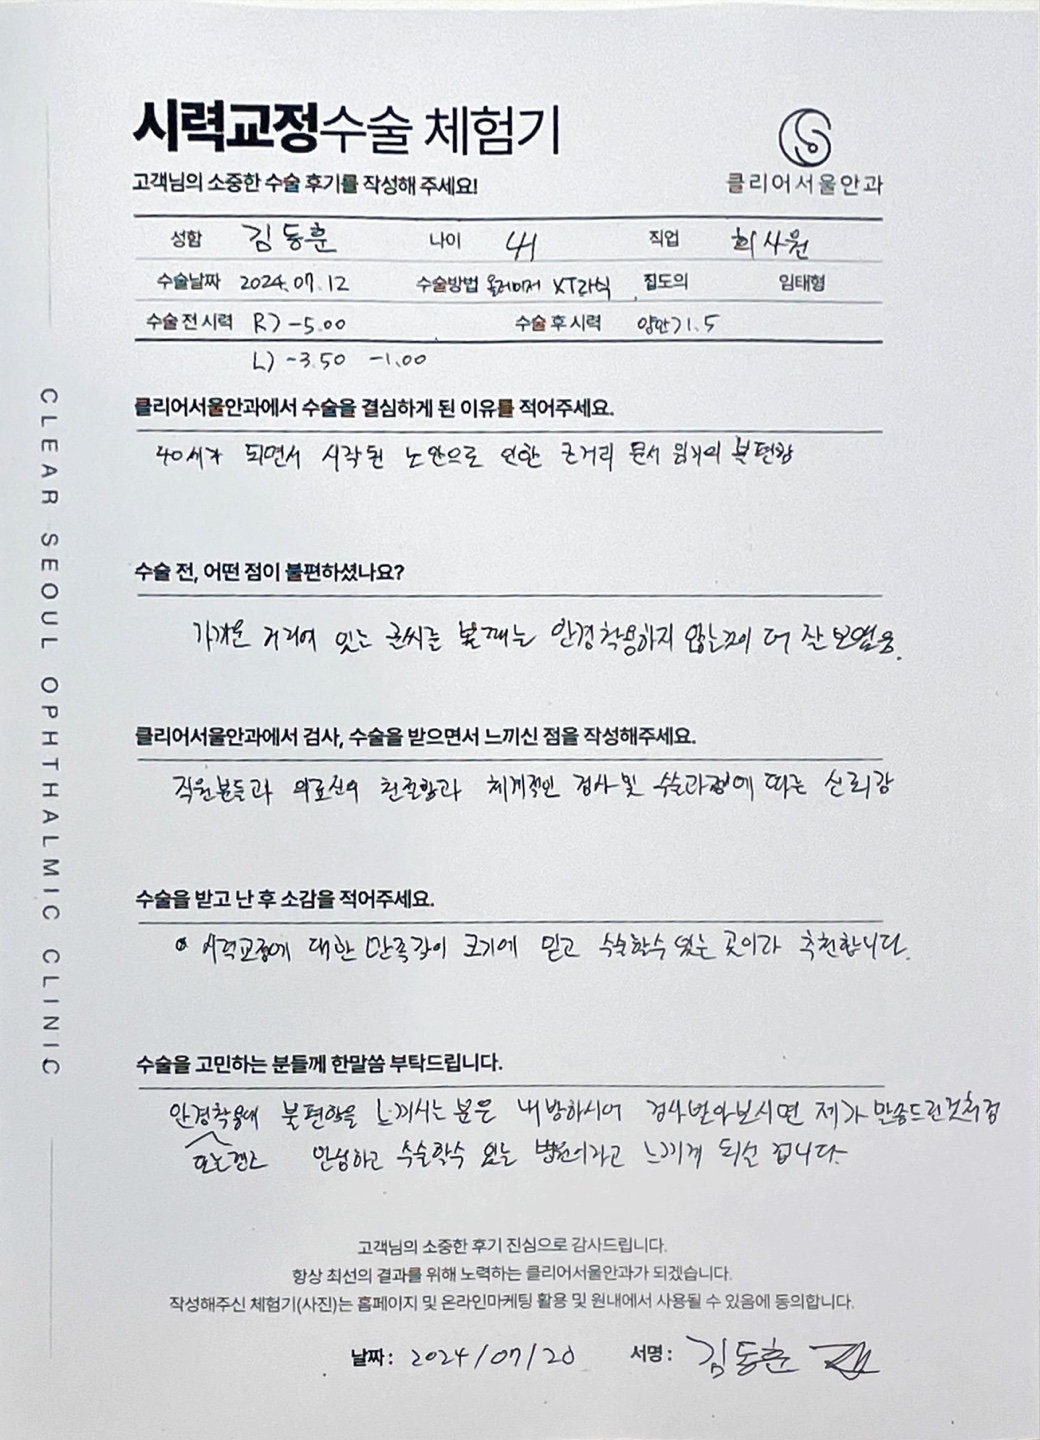 시력교정수술 체험기
고객님의 소중한 수술 후기를 작성해 주세요!
클리어서울안과
성함 김동훈 나이 41 직업 회사원
수술날짜 2024.07.12 수술방법 올레이저 XT라식 집도의 임태형
수술 전 시력 R) -5.00 수술 후 시력 양안) 1.5
L) -3.50 -1.00
클리어서울안과에서 수술을 결심하게 된 이유를 적어주세요.
40세가 되면서 시작된 노안으로 인한 근거리 문서 읽기의 불편함
수술 전, 어떤 점이 불편하셨나요?
가까운 거리에 있는 글씨를 볼때는 안경착용하지 않는것이 더 잘보였음.
클리어서울안과에서 검사, 수술을 받으면서 느끼신 점을 작성해주세요.
직원분들과 의료진의 친절함과 체계적인 검사 및 수술과정에 따른 신뢰감
수술을 받고 난 후 소감을 적어주세요.
시력교정에 대한 만족감이 크기에 믿고 수술할수 있는 곳이라 추천합니다.
수술을 고민하는 분들께 한말씀 부탁드립니다.
안경착용에 불편함을 느끼시는 분은 내방하시어 검사받아보시면 제가 말씀드린것처럼
또는렌즈 안심하고 수술할수 있는 병원이라고 느끼게 되실 겁니다.
고객님의 소중한 후기 진심으로 감사드립니다.
항상 최선의 결과를 위해 노력하는 클리어서울안과가 되겠습니다.
작성해주신 체험기(사진)는 홈페이지 및 온라인마케팅 활용 및 원내에서 사용될 수 있음에 동의합니다.
날짜: 2024/07/20 서명: 김동훈
CLEAR SEOUL OPHTHALMIC CLINIC